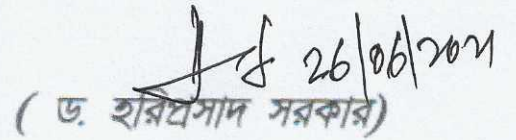 26/06/2021
( ড. হরিপ্রসাদ সরকার)